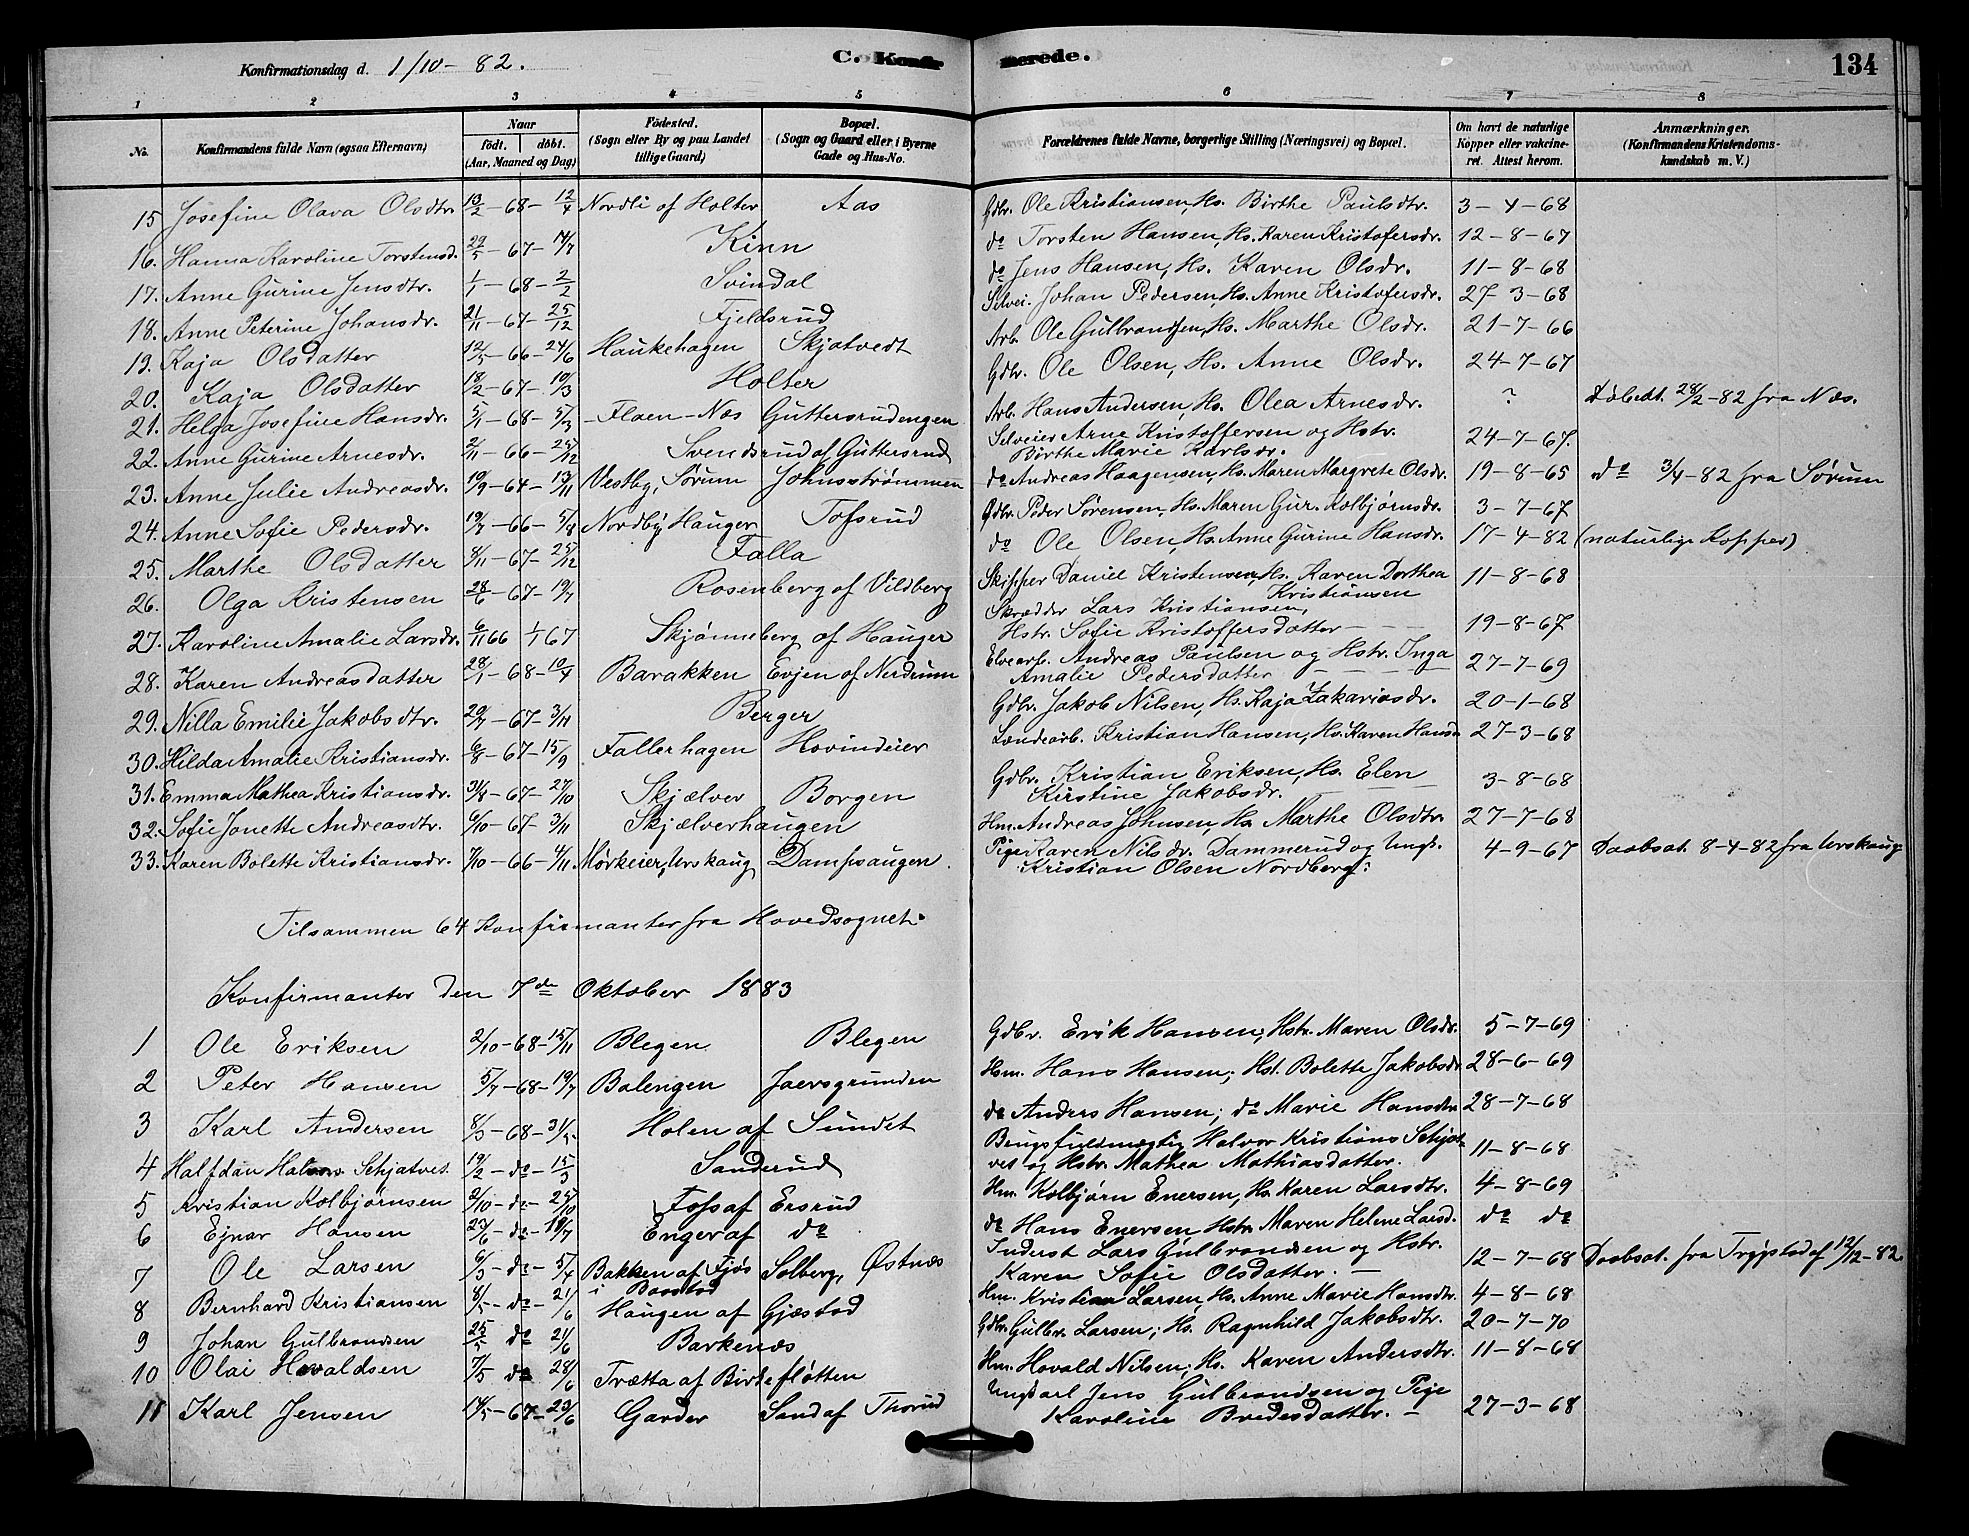 Konfirmationsdag d. 1/10 - 82. C. Konfirmerede. 134
1 2 3 4 5 6 7 8
No. Konfirmandens fulde Navn (ogsaa Efternavn) Naar födt. döbt. (Aar, Maaned og Dag) Födested. (Sogn eller By og paa Landet tillige Gaard) Bopæl. (Sogn og Gaard eller i Byerne Gade og Hus-No. Forældrenes fulde Navne, borgerlige Stilling (Næringsvei) og Bopæl. Om havt de naturlige Kopper eller vakcineret. Attest herom. Anmærkninger. (Konfirmandens Kristendomskundskab m. V.)
15 Josefine Olava Olsdtr. 13/2 - 68 - 12/4 Nordli af Holter Aas Gdbr. Ole Kristiansen, Hs. Birthe Paulsdtr. 3-4-68
16. Hanna Karoline Torstensd. 29/5 - 67 - 14/7 Kinn do Torsten Hansen, Hs. Karen Kristofersdr. 12-8-67
17. Anne Gurine Jensdtr. 1/1 - 68 - 2/2 Svindal do Jens Hansen, Hs. Karen Olsdr. 11-8-68
18. Anne Peterine Johansdr. 21/11 - 67 - 25/12 Fjeldsrud Selvei. Johan Pedersen, Hs. Anne Kristofersdr. 27-3-68
19. Kaja Olsdatter 12/5 - 66 - 24/6 Haukehagen Skjatvedt Arb. Ole Gulbrandsen, Hs. Marthe Olsdr. 21-7-66
20. Kaja Olsdatter 18/2 - 67 - 10/3 Holter Gdbr. Ole Olsen, Hs. Anne Olsdr. 24-7-67
21. Helga Josefine Hansdr. 5/1 - 68 - 5/3 Flaen - Nes Guttersrudengen Arb. Hans Andersen, Hs. Olea Arnesdr. ? Døbeat. 28/2-82 fra Næs.
22. Anne Gurine Arnesdr. 2/11 - 66 - 25/12 Svendsrud af Guttersrud Selveier Arne Kristoffersen og Hstr. Birthe Marie Karlsdr. 24-7-67.
23. Anne Julie Andreasdr. 10/9 - 64 - 13/11 Vestby, Sørum Johnsstrømmen do Andreas Haagensen, Hs. Maren Margrete Olsdr. 19-8-65 do 3/4-82 fra Sørum
24. Anne Sofie Pedersdr. 19/7 - 66 - 5/8 Nordby, Hauger Tofsrud Gdbr. Peder Sørensen, Hs. Maren Gur. Kolbjørnsdr. 3-7-67
25. Marthe Olsdatter 8/11 - 67 - 25/12 Falla do Ole Olsen, Hs. Anne Gurine Hansdr. 17-4-82 (naturlige Kopper)
26. Olga Kristensen 28/6 - 67 - 19/7 Rosenberg af Vildberg Skipper Daniel Kristensen, Hs. Karen Dorthea Kristiansen 11-8-68
27. Karoline Amalie Larsdr. 6/11 66 1/1 67 Skjønneberg af Hauger Skrædder Lars Kristiansen, Hstr. Sofie Kristoffersdatter 19-8-67
28. Karen Andreasdatter 28/1 - 68 - 10/4 Barakken Evjen af Nerdrum Elvearb. Andreas Paulsen og Hstr. Inga Amalie Pedersdatter 27-7-69
29. Nilla Emilie Jakobsdtr. 29/7 - 67 - 3/11 Berger Gdbr. Jakob Nilsen, Hs. Kaja Zakariasdr. 20-1-68
30. Hilda Amalie Kristiansdr. 6/8 - 67 - 15/9 Fallerhagen Hovindeier Lændearb. Kristian Hansen, Hs. Karen Hansd. 27-3-68
31. Emma Mathea Kristiansdr. 31/8 - 67 - 27/10 Skjælver Borgen Gdbr. Kristian Eriksen, Hs. Elen Kirstine Jakobsdr. 3-8-68
32. Sofie Jonette Andreasdtr. 6/10 - 67 - 3/11 Skjælverhaugen Hm. Andreas Johnsen, Hs. Marthe Olsdtr. 27-7-68
33. Karen Bolette Kristiansdr. 7/10 - 66 - 4/11 Mørkeier, Urskaug Dampsaugen. Pige Karen Nilsdr. Dammerud og Ungk. Kristian Olsen Nordberg. 4-9-67 Daabsat. 8-4-82 fra Urskaug
Tilsammen 64 Konfirmanter fra Hovedsognet.
Konfirmanter den 7de Oktober 1883
1 Ole Eriksen 2/10 - 68 - 15/11 Blegen Blegen Gdbr. Erik Hansen; Hstr. Maren Olsdr. 5-7-69
2 Peter Hansen 5/7 - 68 - 19/7 Balengen Jaersgrunden Hsm. Hans Hansen; Hst. Bolette Jakobsdr. 28-6-69
3 Karl Andersen 8/5 - 68 - 31/5 Holen af Sundet do Anders Hansen; do Marie Hansdtr. 28-7-68
4 Halfdan Halvors. Schjatvet. 19/2 - do - 15/3 Sanderud Brugsfuldmægtig Halvor Kristians Schjatvet og Hstr. Mathea Mathiasdatter. 11-8-68
5 Kristian Kolbjørnsen 2/10 - do - 25/10 Foss af Ersrud Hm. Kolbjørn Enersen, Hs. Karen Larsdtr. 4-8-69
6 Ejnar Hansen 23/6 - do - 19/7 Enger af do do Hans Enersen Hstr. Maren Helene Larsd. do do
7 Ole Larsen 6/3 - do - 5/4 Bakken af Fjøs i Baastad Solberg, Østnæs Inderst Lars Gulbrandsen og Hstr. Karen Sofie Olsdatter. 12-7-68 Daabsat. fra Trygstad af 12/12-82
8 Bernhard Kristiansen 8/5 - do - 21/6 Haugen af Gjæstad Hm. Kristian Larsen, Hs. Anne Marie Hansdtr. 4-8-68
9 Johan Gulbrandsen 25/5 do 21/6 Barkenæs Gdbr. Gulbr. Larsen; Hs. Ragnhild Jakobsdtr. 20-7-70
10 Olai Hovaldsen 7/5 do 28/6 Trætta af Birkefløtten Hm. Hovald Nilsen; Hs. Karen Andersdtr. 11-8-68
11 Karl Jensen 14/5 - 67 - 23/6 Garder Sand af Thorud Ungkarl Jens Gulbrandsen og Pige Karoline Bredesdatter. 27-3-68